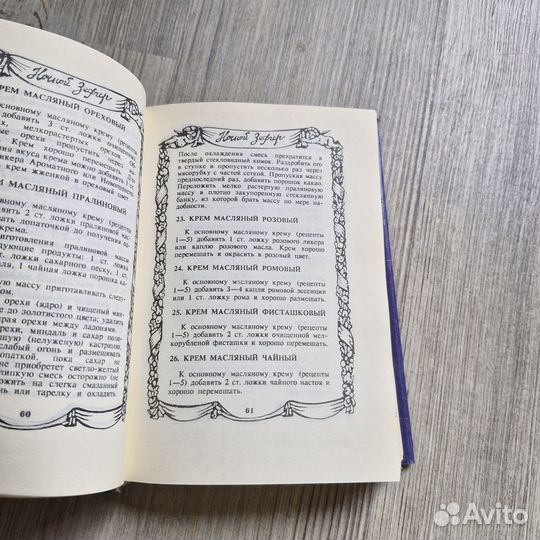 Ночной Зефир
КРЕМ МАСЛЯНЫЙ ОРЕХОВЫЙ
основному масляному крему (рецепты
добавить 3 ст. ложки
мелкорастертых
орехи пропустить
Крем хорошо перемешать.
вкуса крема можно добавить 1
ликера Ароматного или Новогоднего
крем жженкой в ореховый цвет.
МАСЛЯНЫЙ ПРАЛИНОВЫЙ
основному масляному крему (рецепты
добавить 2 ст. ложки пралиновой
лопаточкой до получения
крема.
приготовления пралиновой массы
следующие продукты: 1 ст.
сахарного песку, 1 ст.
1 чайная ложка порошка
массу приготавливать следу-
орехи (ядро) и чищеный мин-
до золотистого цвета;
орехи между ладонями.
орехи, миндаль и сахар поло-
(нелуженую) кастрюлю,
слабый огонь и размешивать
лопаткой, пока сахар не
приобретет светло-желтый
липкую смесь осторожно (не
на слегка смазанный
или тарелку и охладить.
60
Ночной Зефир
После охлаждения смесь превратится в
твердый стекловидный комок. Раздробить его
в ступке и пропустить несколько раз через
мясорубку с частой сеткой. Пропуская массу
предпоследний раз, добавить порошок какао.
Переложить мелко растертую пралиновую
массу в плотно закупоренную стеклянную
банку, из которой брать массу по мере надо-
бности.
23. КРЕМ МАСЛЯНЫЙ РОЗОВЫЙ
К основному масляному крему (рецепты
1—5) добавить 1 ст. ложку розового ликера
или каплю розового масла. Крем хорошо
перемешать и окрасить в розовый цвет.
24. КРЕМ МАСЛЯНЫЙ РОМОВЫЙ
К основному масляному крему (рецепты
1—5) добавить 3—4 капли ромовой эссенции
или 1 ст. ложку рома и хорошо размешать.
25. КРЕМ МАСЛЯНЫЙ ФИСТАШКОВЫЙ
К основному масляному крему (рецепты
1—5) добавить 2 ст. ложки очищенной мел-
корубленой фисташки и хорошо перемешать.
26. КРЕМ МАСЛЯНЫЙ ЧАЙНЫЙ
К основному масляному крему (рецепты
1—5) добавить 2 ст. ложки чайного настоя и
хорошо перемешать.
61
Avito